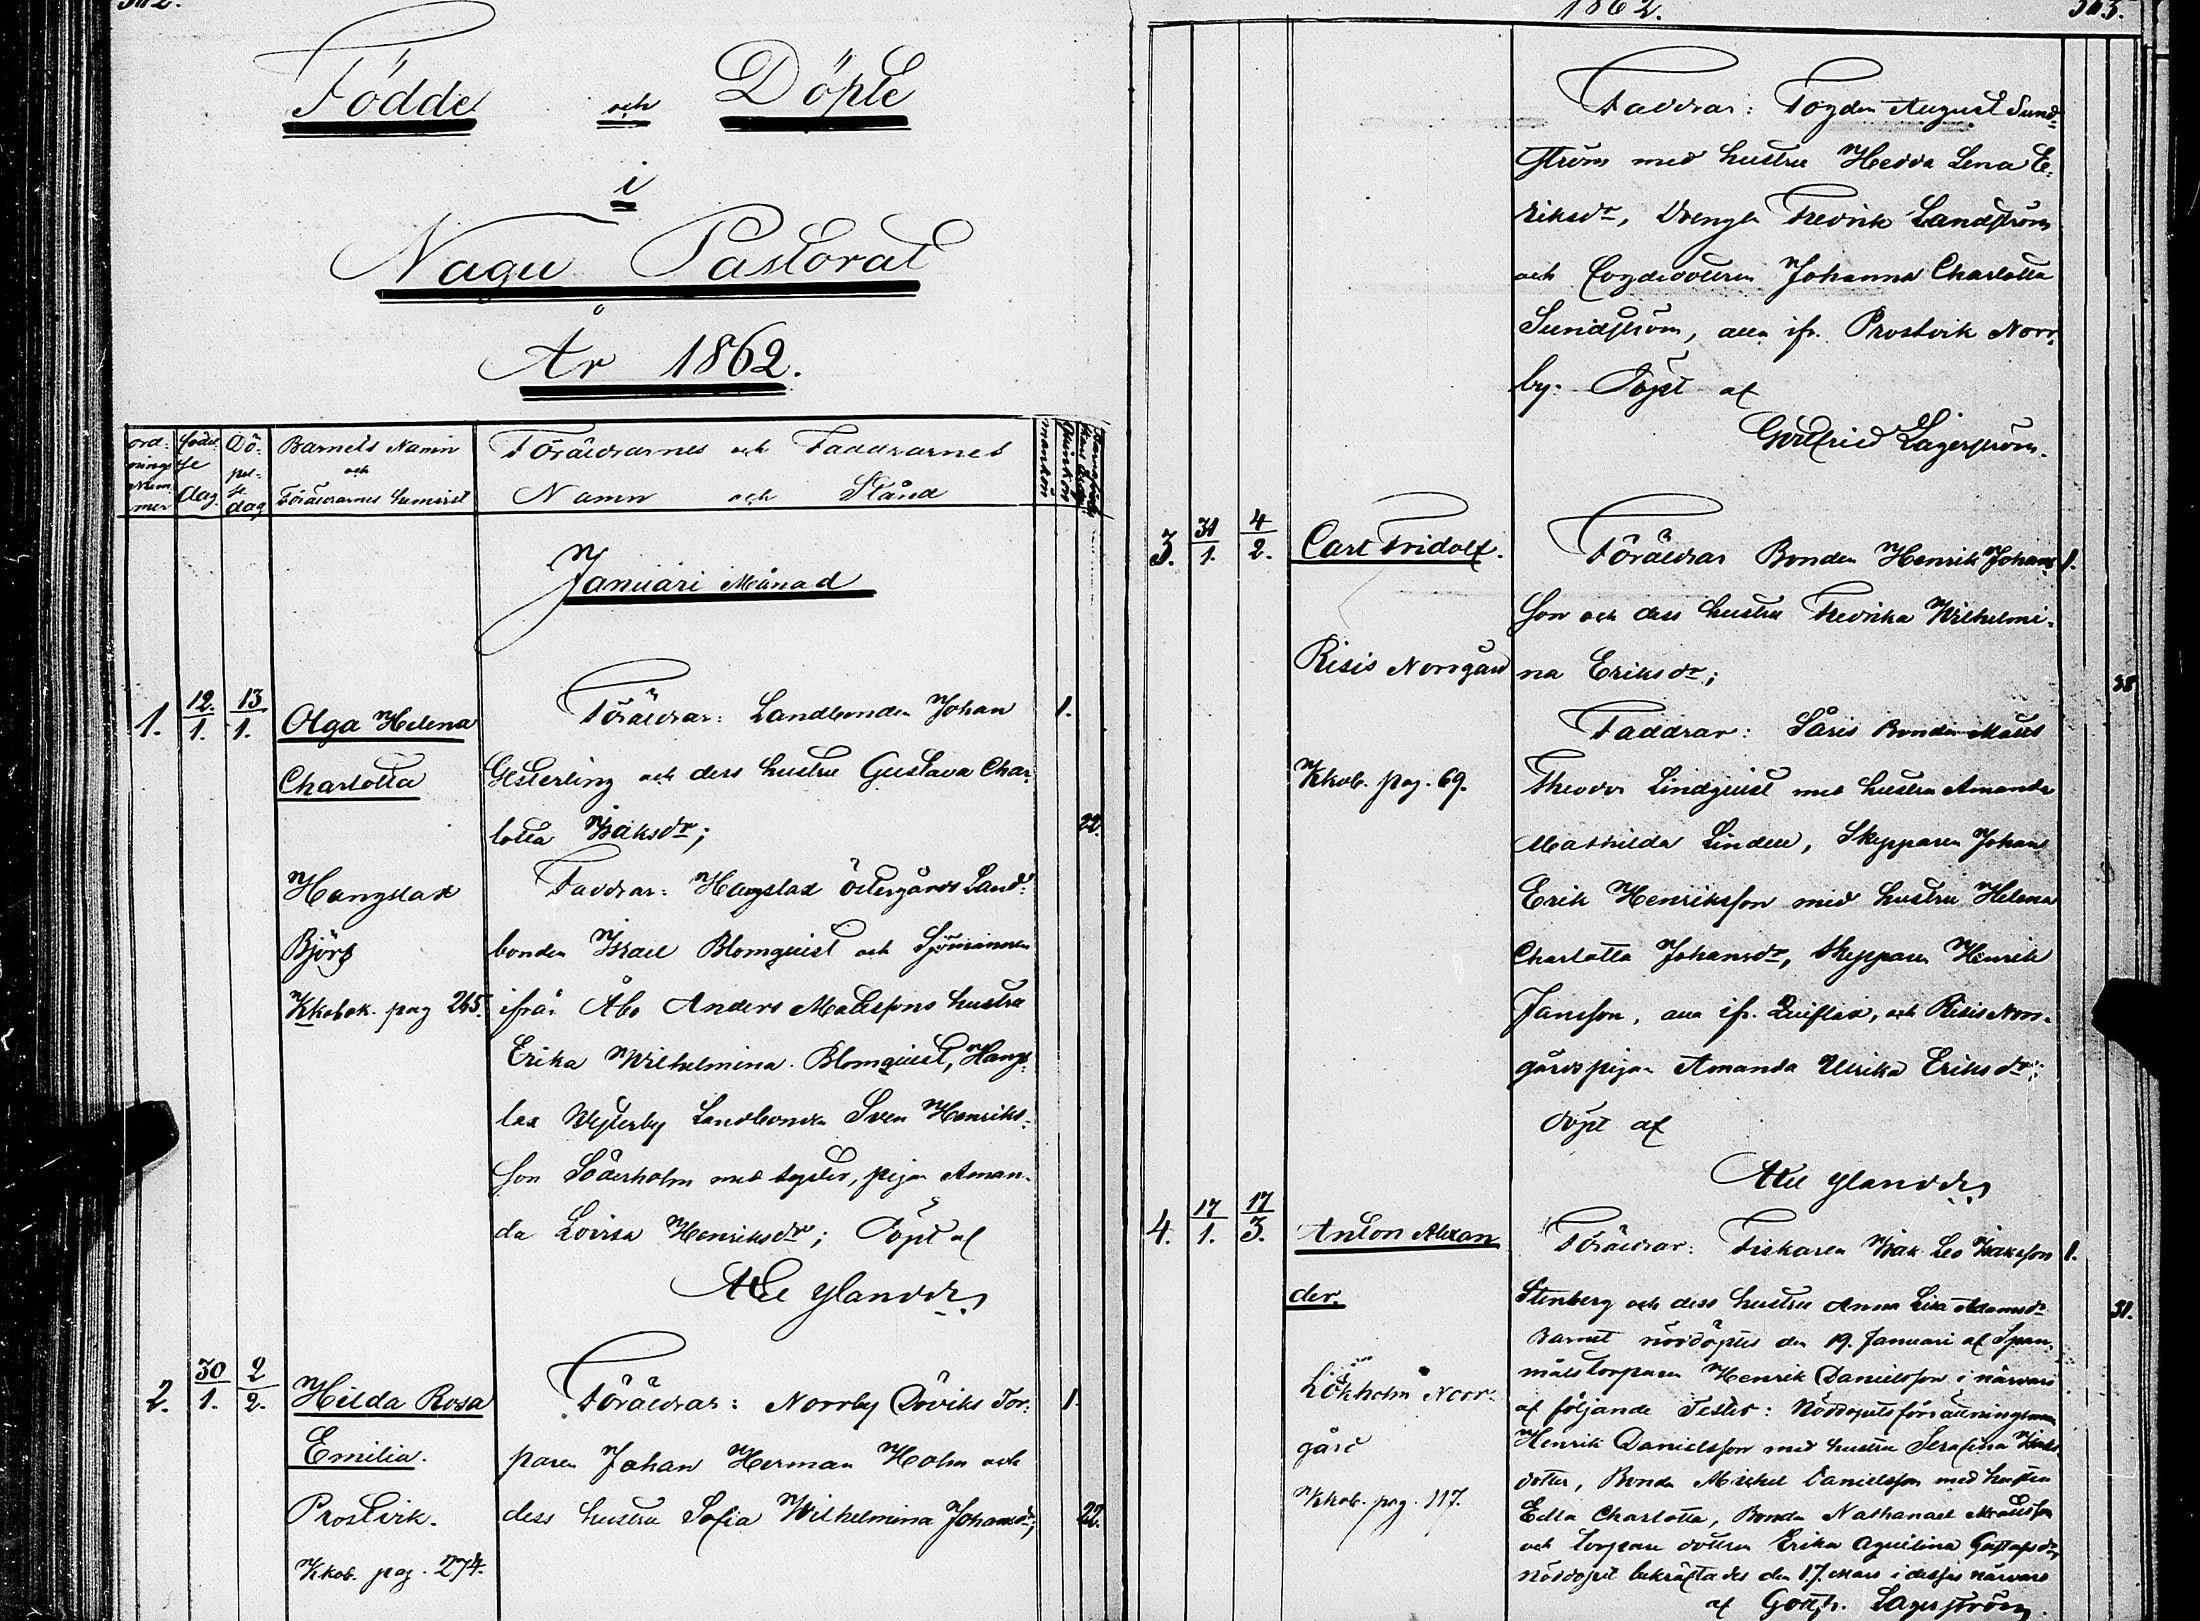 1862.
Födde och Döpte
i
Nagu Pastorat
År 1862.
ord-
nings
num-
mer
födel-
se
dag.
Dö-
pel-
se
dag
Barnets Namn
och
Föräldrarnes hemvist
Föräldrarnes och Faddrarnes
Namn och Stånd
Januari Månad
1. 12./1. 13/1. Olga Helena
Charlotta
Hangslax
Björs
Kkobok. pag 265.
Föräldrar: Landbonden Johan 1.
Gesterling och dess hustru Gustava Char-
lotta Isaksdr; 22.
Faddrar: Hangslax Östergårds Land-
bonden Israel Blomquist och Sjömannen
ifrån Åbo Anders Mattssons hustru
Erika Wilhelmina Blomquist, Hangs-
lax Westerby Landbonden Sven Henriks-
son Söderholm med syster, pigan Aman-
da Lovisa Henriksdr; Döpt af
Abr Ylander
2. 30/1. 2/2. Hilda Rosa
Emilia.
Prostvik.
Kkob. pag. 274.
Föräldrar: Norrby Döviks Tor- 1.
paren Johan Herman Holm och
dess hustru Sofia Wilhelmina Johansdr; 22.
Faddrar: Fogden August Sund-
ström med hustru Hedda Lena E-
riksdr, Drengen Fredrik Landström
och fogdedottren Johanna Charlotta
Sundström, alla ifr. Prostvik Norr-
by. Döpt af
Gottfried Lagerström.
3. 31/1. 4/2. Carl Fridolf.
Risis Norrgård
Kkob. pag. 69.
Föräldrar Bonden Henrik Johans- 1.
son och dess hustru Fredrika Wilhelmi-
na Eriksdr; 38
Faddrar: Såris Bonden Matts
Theodor Lindquist med hustru Amanda
Mathilda Lindell, Skepparen Johan
Erik Henriksson med hustru Helena
Charlotta Johansdr, Skepparen Henrik
Jansson, alla ifr. Quiflax, och Risis Norr-
gårds pigan Amanda Ulrika Eriksdr;
Döpt af
Abr Ylander
4. 17/1. 17/3. Anton Alexan
der.
Lökholm Norr-
gård
Kkob. pag. 117.
Föräldrar: Fiskaren Isak Leo Isaksson 1.
Stenberg och dess hustru Anna Lisa Adamsdr 31.
Barnet nöddöptes den 19. Januari af Span-
måls torparen Henrik Danielsson i närvaro
af följande Tester: Nöddopsförrättningsman
Henrik Danielsson med hustru Serafina Isaks
dotter, Bonden Michel Danielsson med hustru
Edla Charlotta, Bonden Nathanael Mattsson
och torpare dottren Erika Aqvilina Gustafsdr,
Nöddopet bekräftades den 17. Mars i desses närvaro
af Gottfr. Lagerström.